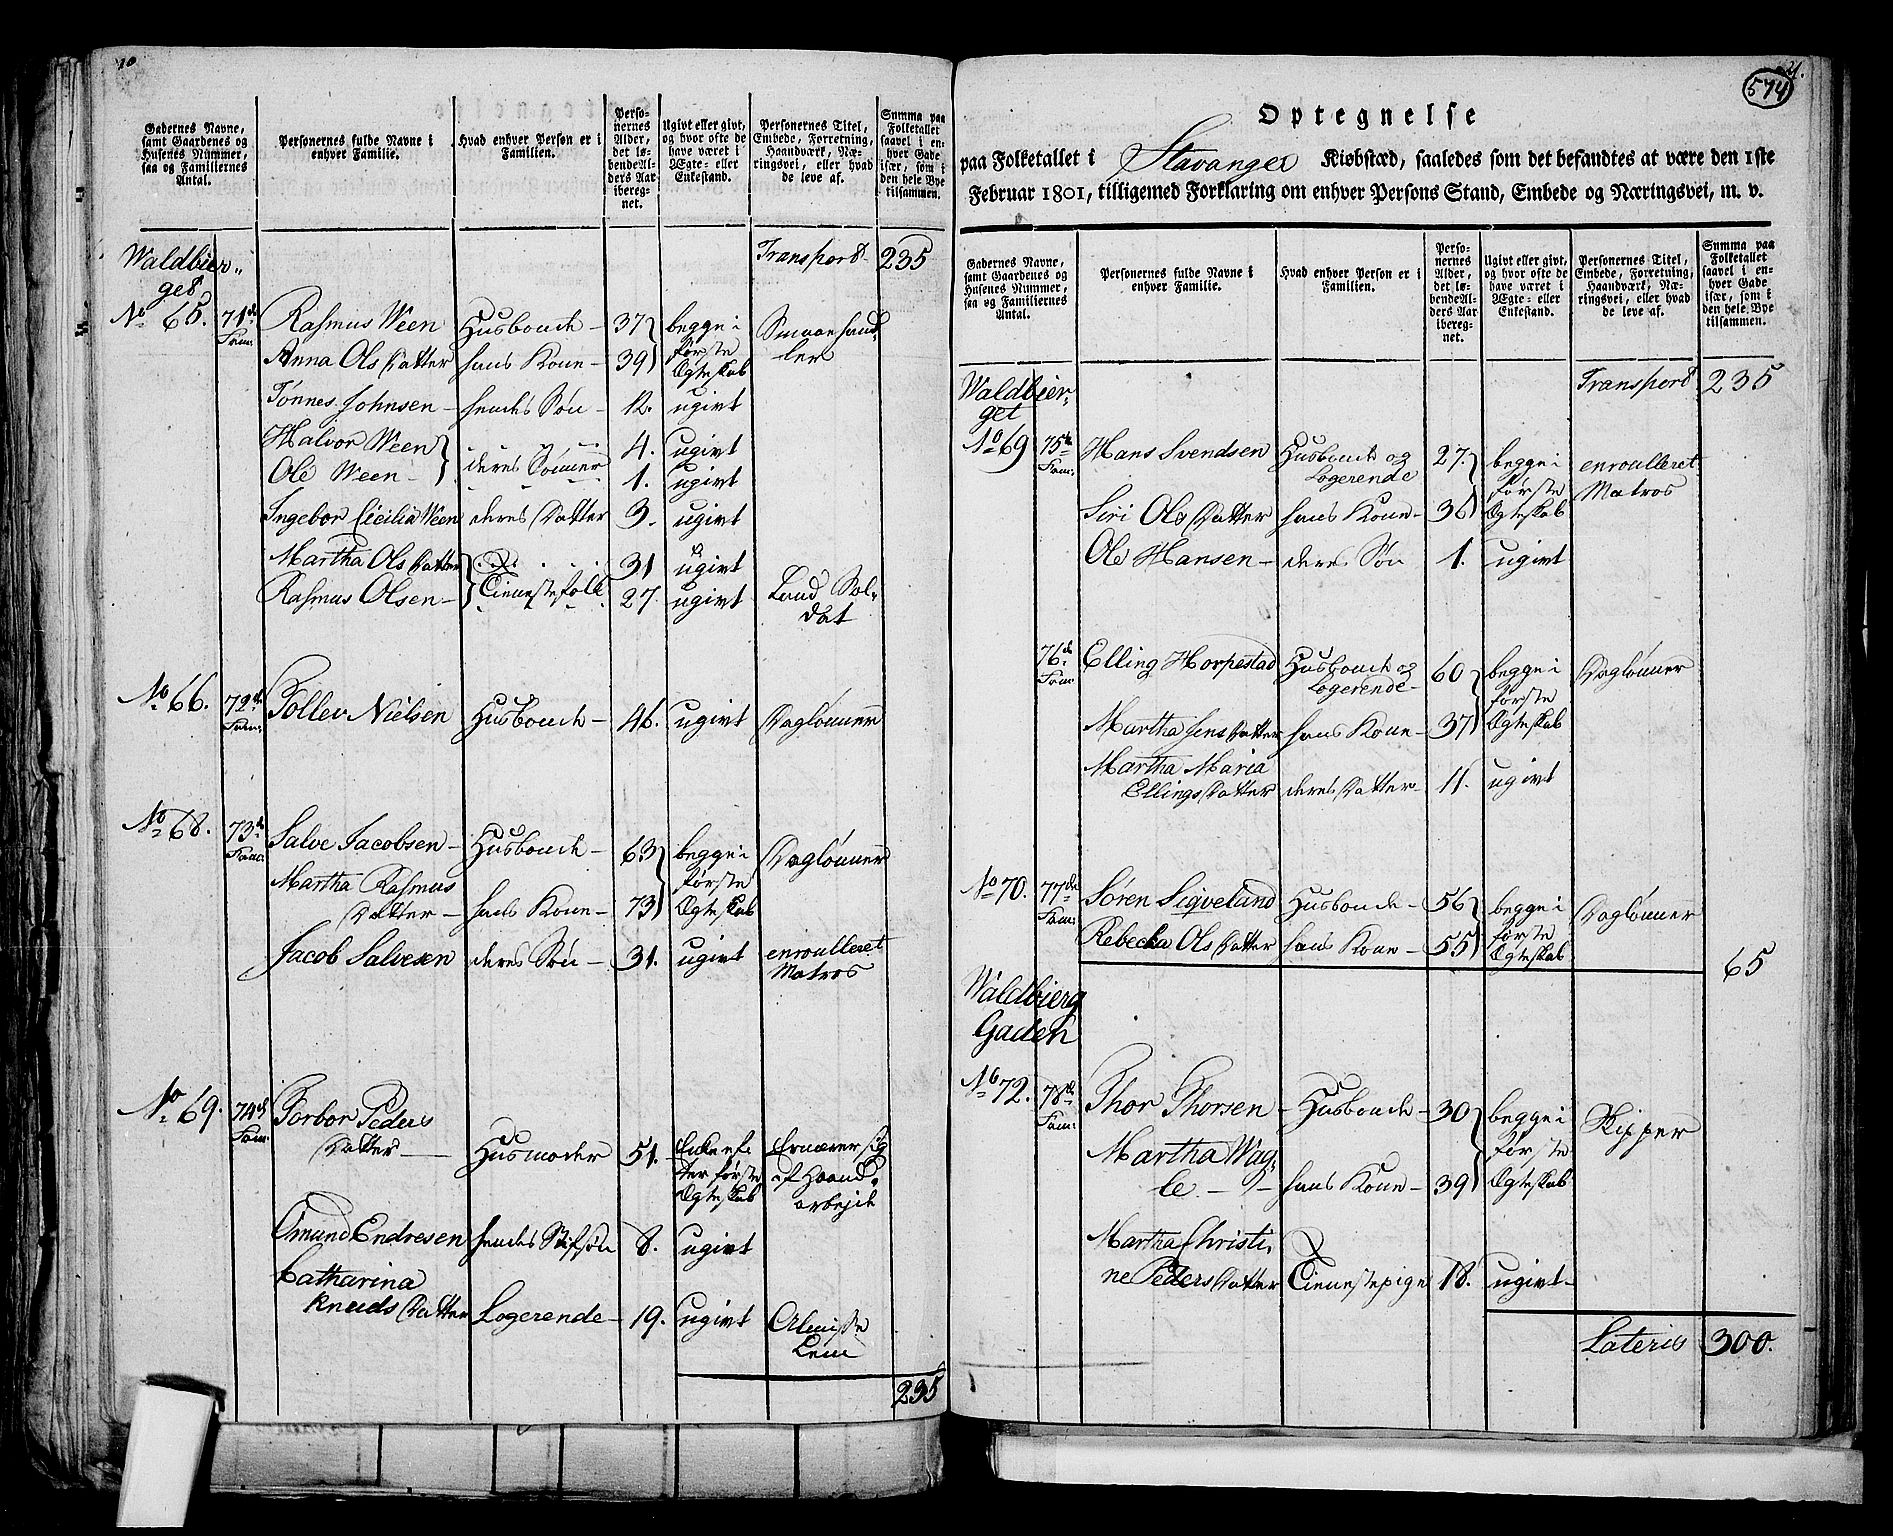 10
Gadernes Navne, samt Gaardenes og Husenes Nummer, saa og Familiernes Antal.
Personernes fulde Navne i enhver Familie.
Hvad enhver Person er i Familien.
Personernes Alder, det løbende Alders Aar iberegnet.
Ugivt eller givt, og hvor ofte de have været i Ægte- eller Enkestand.
Personernes Titel, Embede, Forretning, Haandværk, Næringsvei, eller hvad de leve af.
Summa paa Folketallet saavel i enhver Gade især, som i den hele Bye tilsammen.
Waldbier- Transport 235
get
No 65. 71de Fam: Rasmus Ween Husbonde 37 begge i Smaaehand-
Anna Ols Datter hans Kone 39 første Ægteskab ler
Tönnes Johnsen hendes Søn 12. ugivt
Halvor Ween 4. ugivt
Ole Ween deres Sønner 1. ugivt
Ingebor Cicilia Ween deres Datter 3. ugivt
Martha Ols Datter 31 ugivt
Rasmus Olsen Tienestefolk 27 ugivt Land Sol-
dat
No 66. 72de Fam: Tollev Nielsen Husbonde 46. ugivt Daglønner
No 68. 73de Fam: Salve Jacobsen Husbonde 63 begge i Daglønner
Martha Rasmus første
Datter hans Kone 73 Ægteskab
Jacob Salvesen deres Søn 31. ugivt enroulleret
Matros
No 69. 74de Fam: Torbor Peders
Datter Husmoder 51. Enke ef- Ernærer sig
ter første af Haand-
Ægteskab arbejde
Omund Endresen hendes Stifsøn 8. ugivt
Catharina
Knuds Datter Logerende 19. ugivt Almisse
Lem
235
21.
574
Optegnelse
paa Folketallet i Stavanger Kiøbstæd, saaledes som det befandtes at være den 1ste
Februar 1801, tilligemed Forklaring om enhver Persons Stand, Embede og Næringsvei, m. v.
Gadernes Navne, samt Gaardenes og Husenes Nummer, saa og Familiernes Antal.
Personernes fulde Navne i enhver Familie.
Hvad enhver Person er i Familien.
Personernes Alder, det løbende Alders Aar iberegnet.
Ugivt eller givt, og hvor ofte de have været i Ægte- eller Enkestand.
Personernes Titel, Embede, Forretning, Haandværk, Næringsvei, eller hvad de leve af.
Summa paa Folketallet saavel i enhver Gade især, som i den hele Bye tilsammen.
Waldbier- Transport 235
get
No 69 75de Fam: Hans Svendsen Husbonde og 27. begge i enroulleret
Logerende første Matros
Siri Ols Datter hans Kone 36 Ægteskab
Ole Hansen deres Søn 1. ugivt
76de Fam: Elling Horpestad Husbonde og 60 begge i Daglønner
Logerende første
Martha Jens Datter hans Kone 37 Ægteskab
Martha Maria
Ellings Datter deres Datter 11. ugivt
No 70. 77de Fam: Sören Sigveland Husbonde 56 begge i Daglønner
Rebecka Ols Datter hans Kone 55 første Ægteskab
65
Waldbierg
Gaden
No 72. 78de Fam: Thor Thorsen Husbonde 30 begge i Skipper
Martha Wag- første
le hans Kone 39 Ægteskab
Martha Christi-
ne Peders Datter Tienestepige 18. ugivt
Lateris 300.